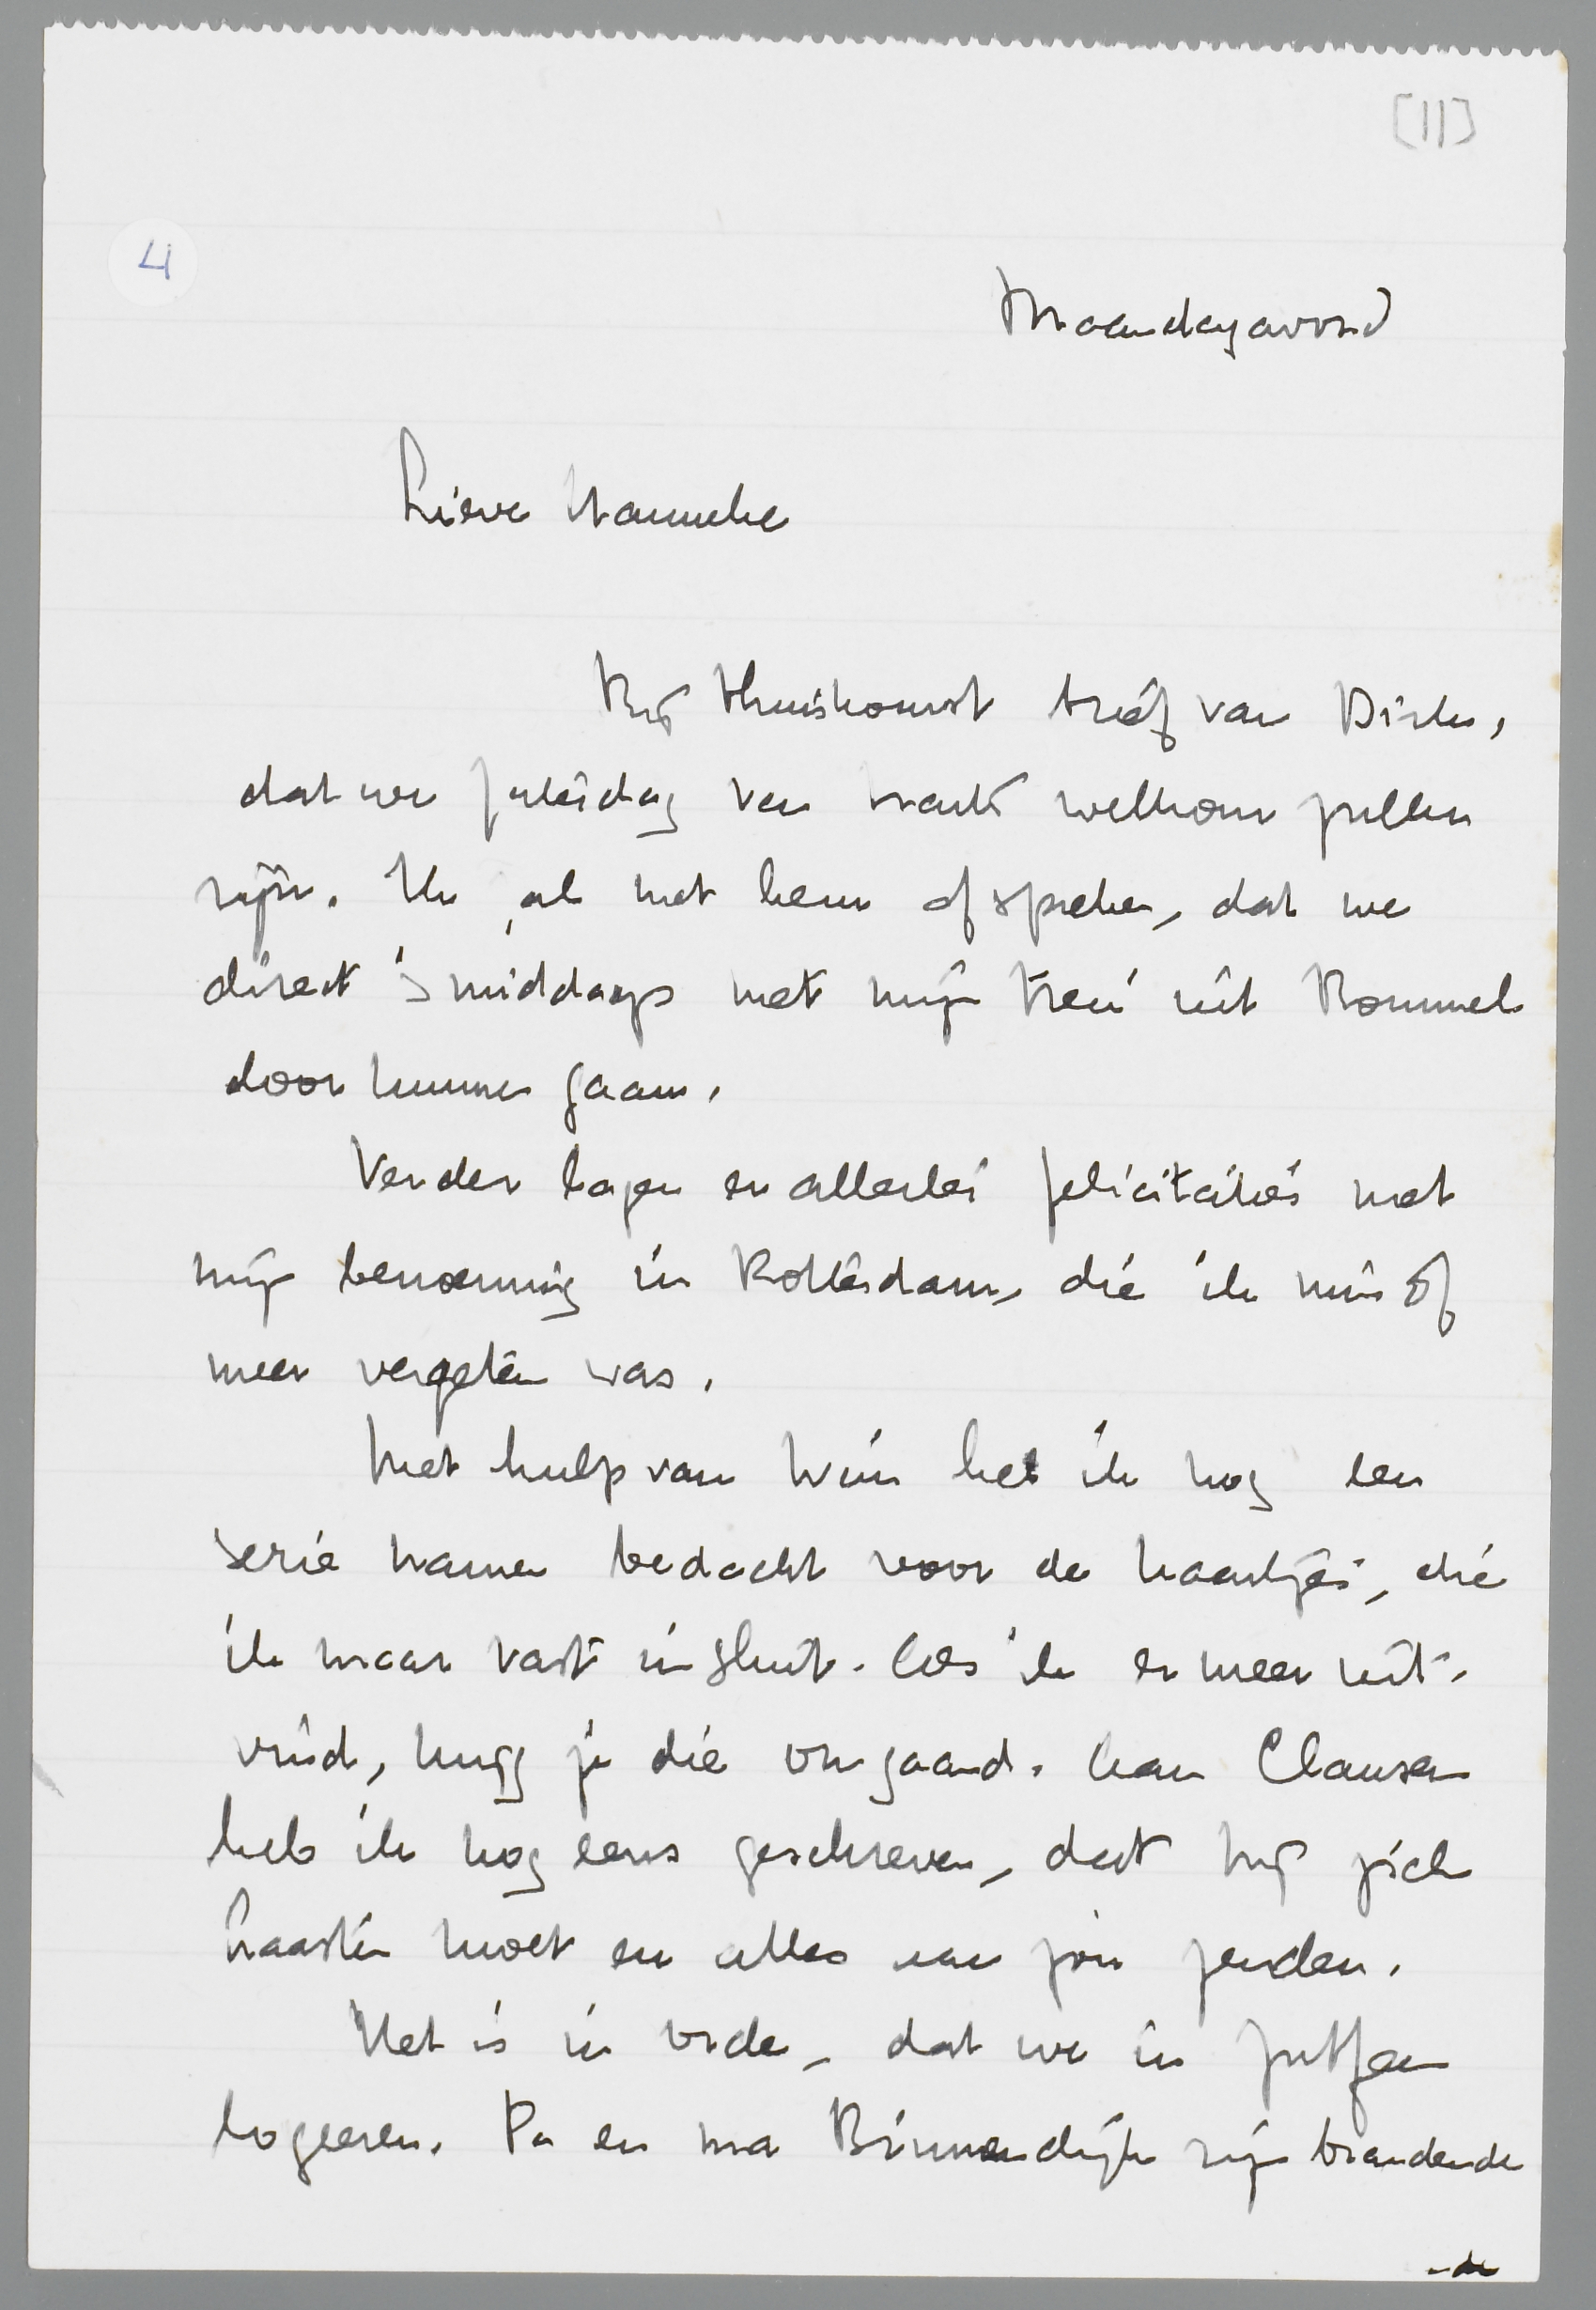 [11]
4
Maandagavond
Lieve Hanneke
Bij thuiskomst brief van Dirk,
dat we Zaterdag van harte welkom zullen
zijn. Ik zal met hem afspreken, dat we
direct 's middags met mijn trein uit Bommel
door kunnen gaan.
Verder lagen er allerlei felicitaties met
mijn benoeming in Rotterdam, die ik min of
meer vergeten was.
Met hulp van Wim heb ik nog een
serie namen bedacht voor de kaartjes, die
ik maar vast insluit. Als ik er meer uit-
vind, krijg je die omgaand. Aan Clausen
heb ik nog eens geschreven, dat hij zich
haasten moet en alles aan jou zenden.
Het is in orde, dat we in Zutfen
logeeren. Pa en ma Binnendijk zijn brandende
-de